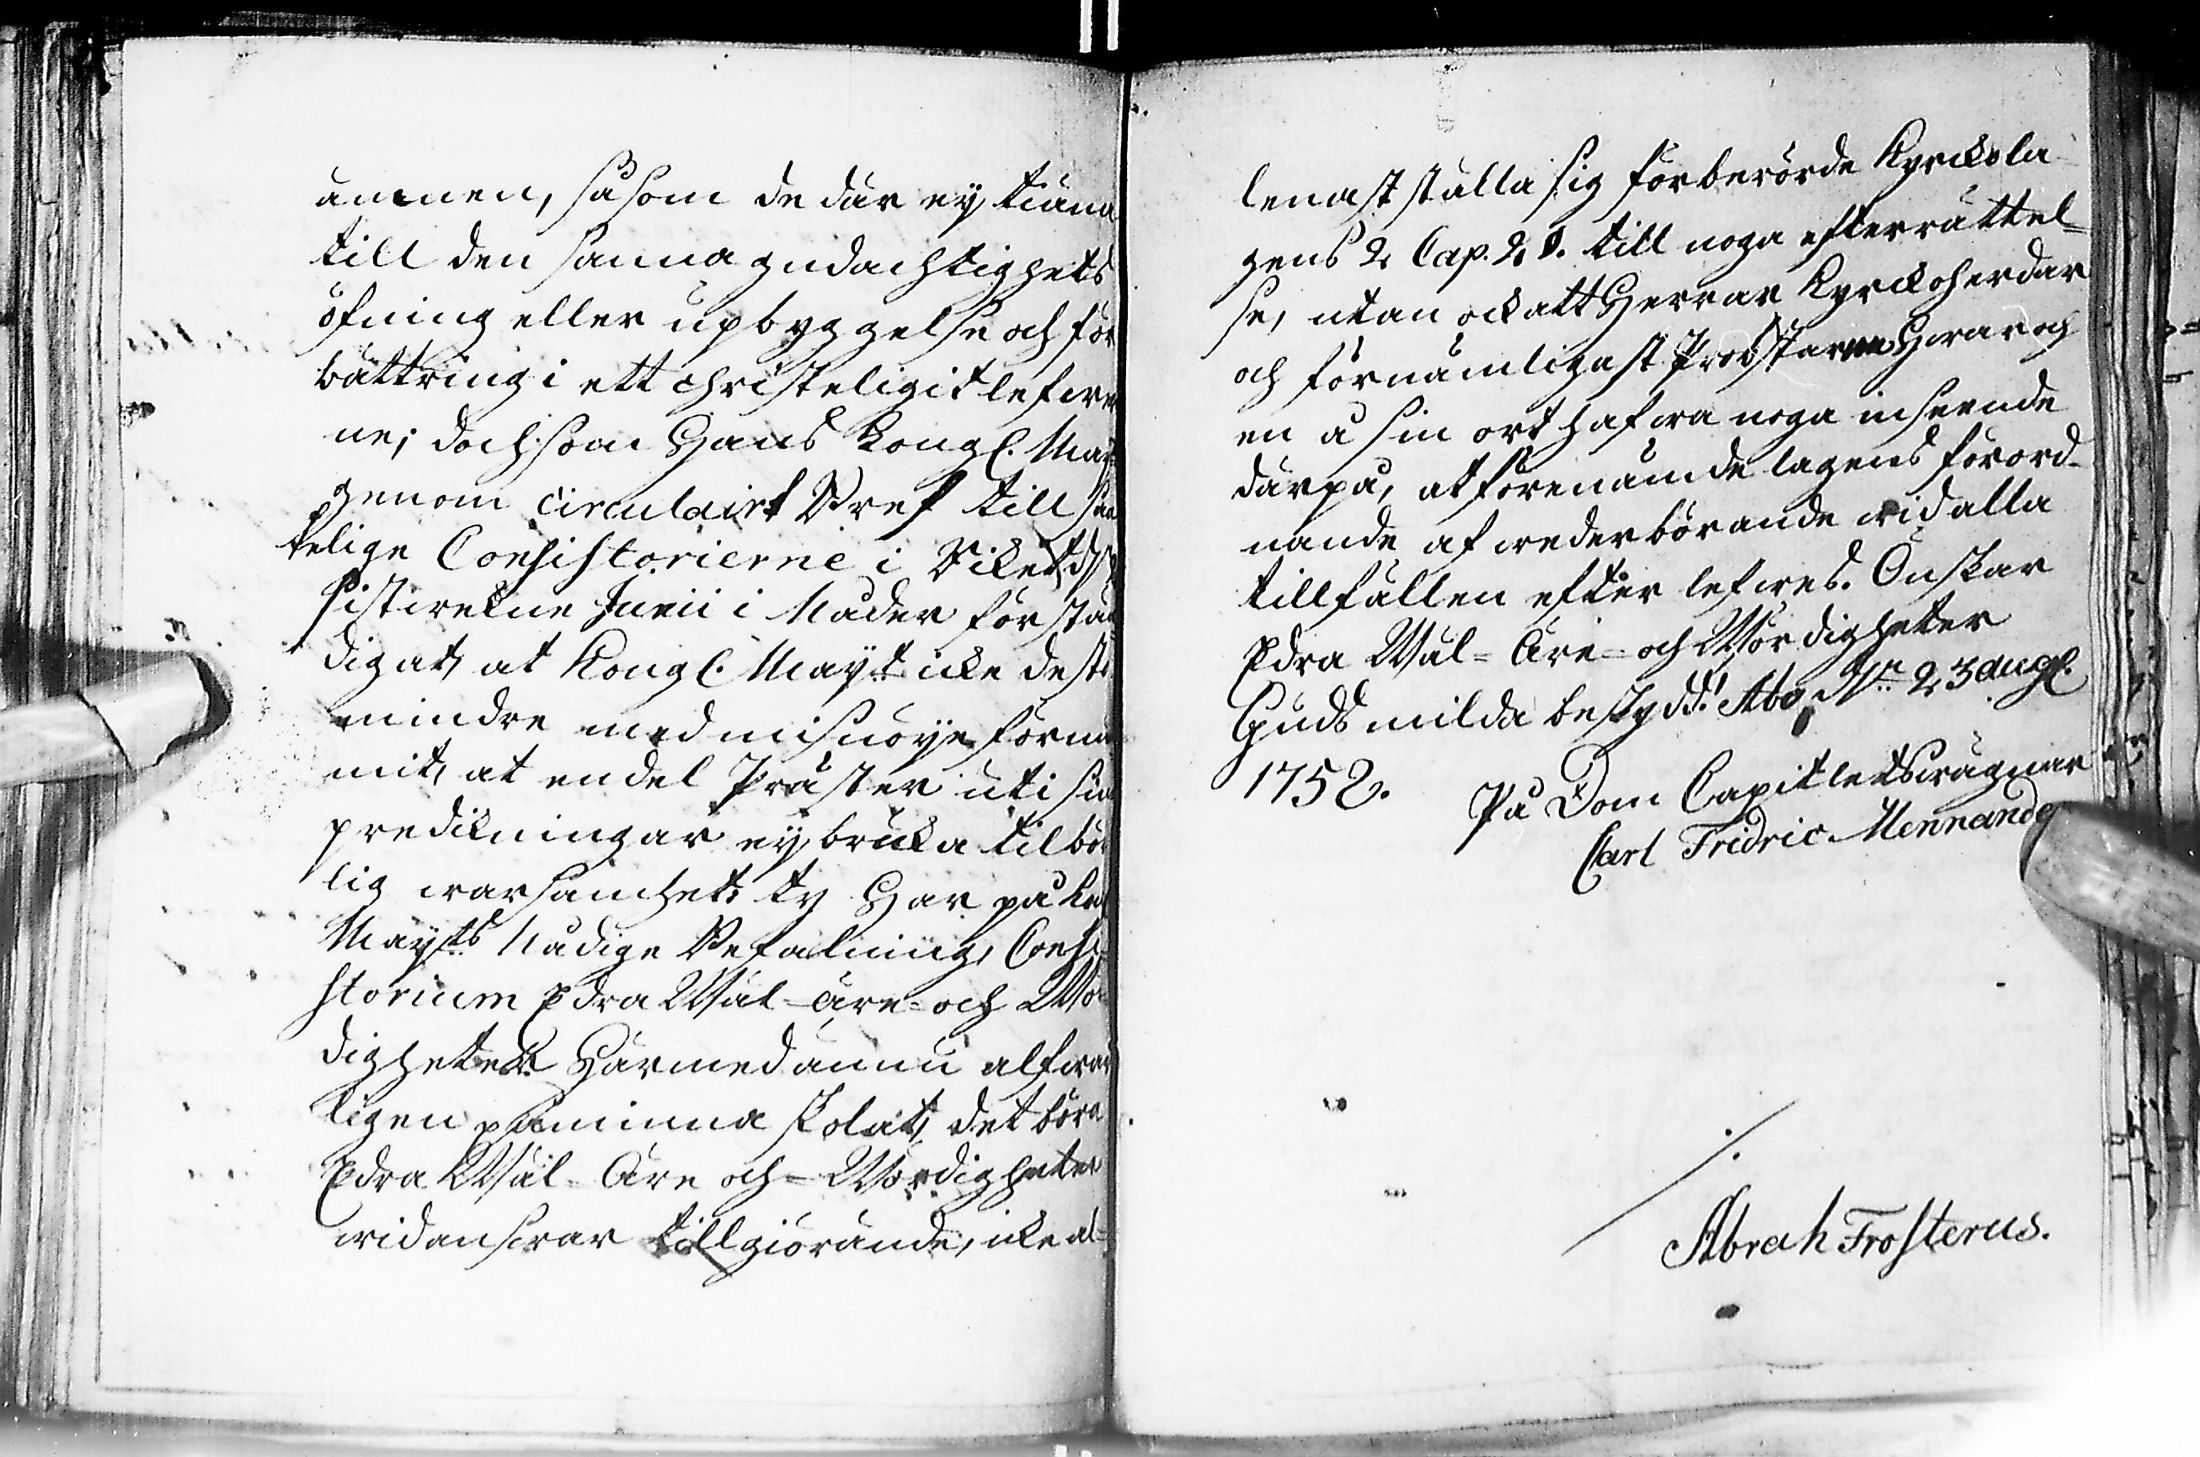 ämnen, såsom de där ej tiäna
till den sanna gudachtighets
öfning eller upbyggelse och för
bättring i ett christeligit lefwer
ne; doch som Hans Kongl. May:
genom circulairt Bref till sam
telige Consistorierne i Riket, d.
sistwekne Junii i Nåder förstän
digat, at Kongl. May:t icke desto
mindre med misnöye förnu
mit, at en del Präster uti sin
predikningar ej bruka tilbör
lig warsamhet; ty Har på Kol
May:ts Nådige Befalning, Consi
storium Edra Wäl-äre- och Wör
digheter Härmed ännu alfwar
ligen påminna skolat, det böra
Edra Wäl-Äre och-Wördigheter
wid answar tillgiörande, icke al-
lenast ställa sig förberörde Kyrckola
gens 2 Cap. 2 §. till noga efterrättel-
se, utan ock att Herrar Kyrckoherdar
och förnämligast Probstarne Hwar och
en å sin ort hafwa noga inseende
därpå, at förenämde lagens förord-
nande af wederbörande wid alla
tillfällen efterlefwes. Önskar
Edra Wäl-Äre- och Wördigheter
Guds milda beskydd! Åbo d:n 23 aug.
1752.
På Dom Capitlets wägnar
Carl Fridric Mennande
./.
Abrah Frosterus.